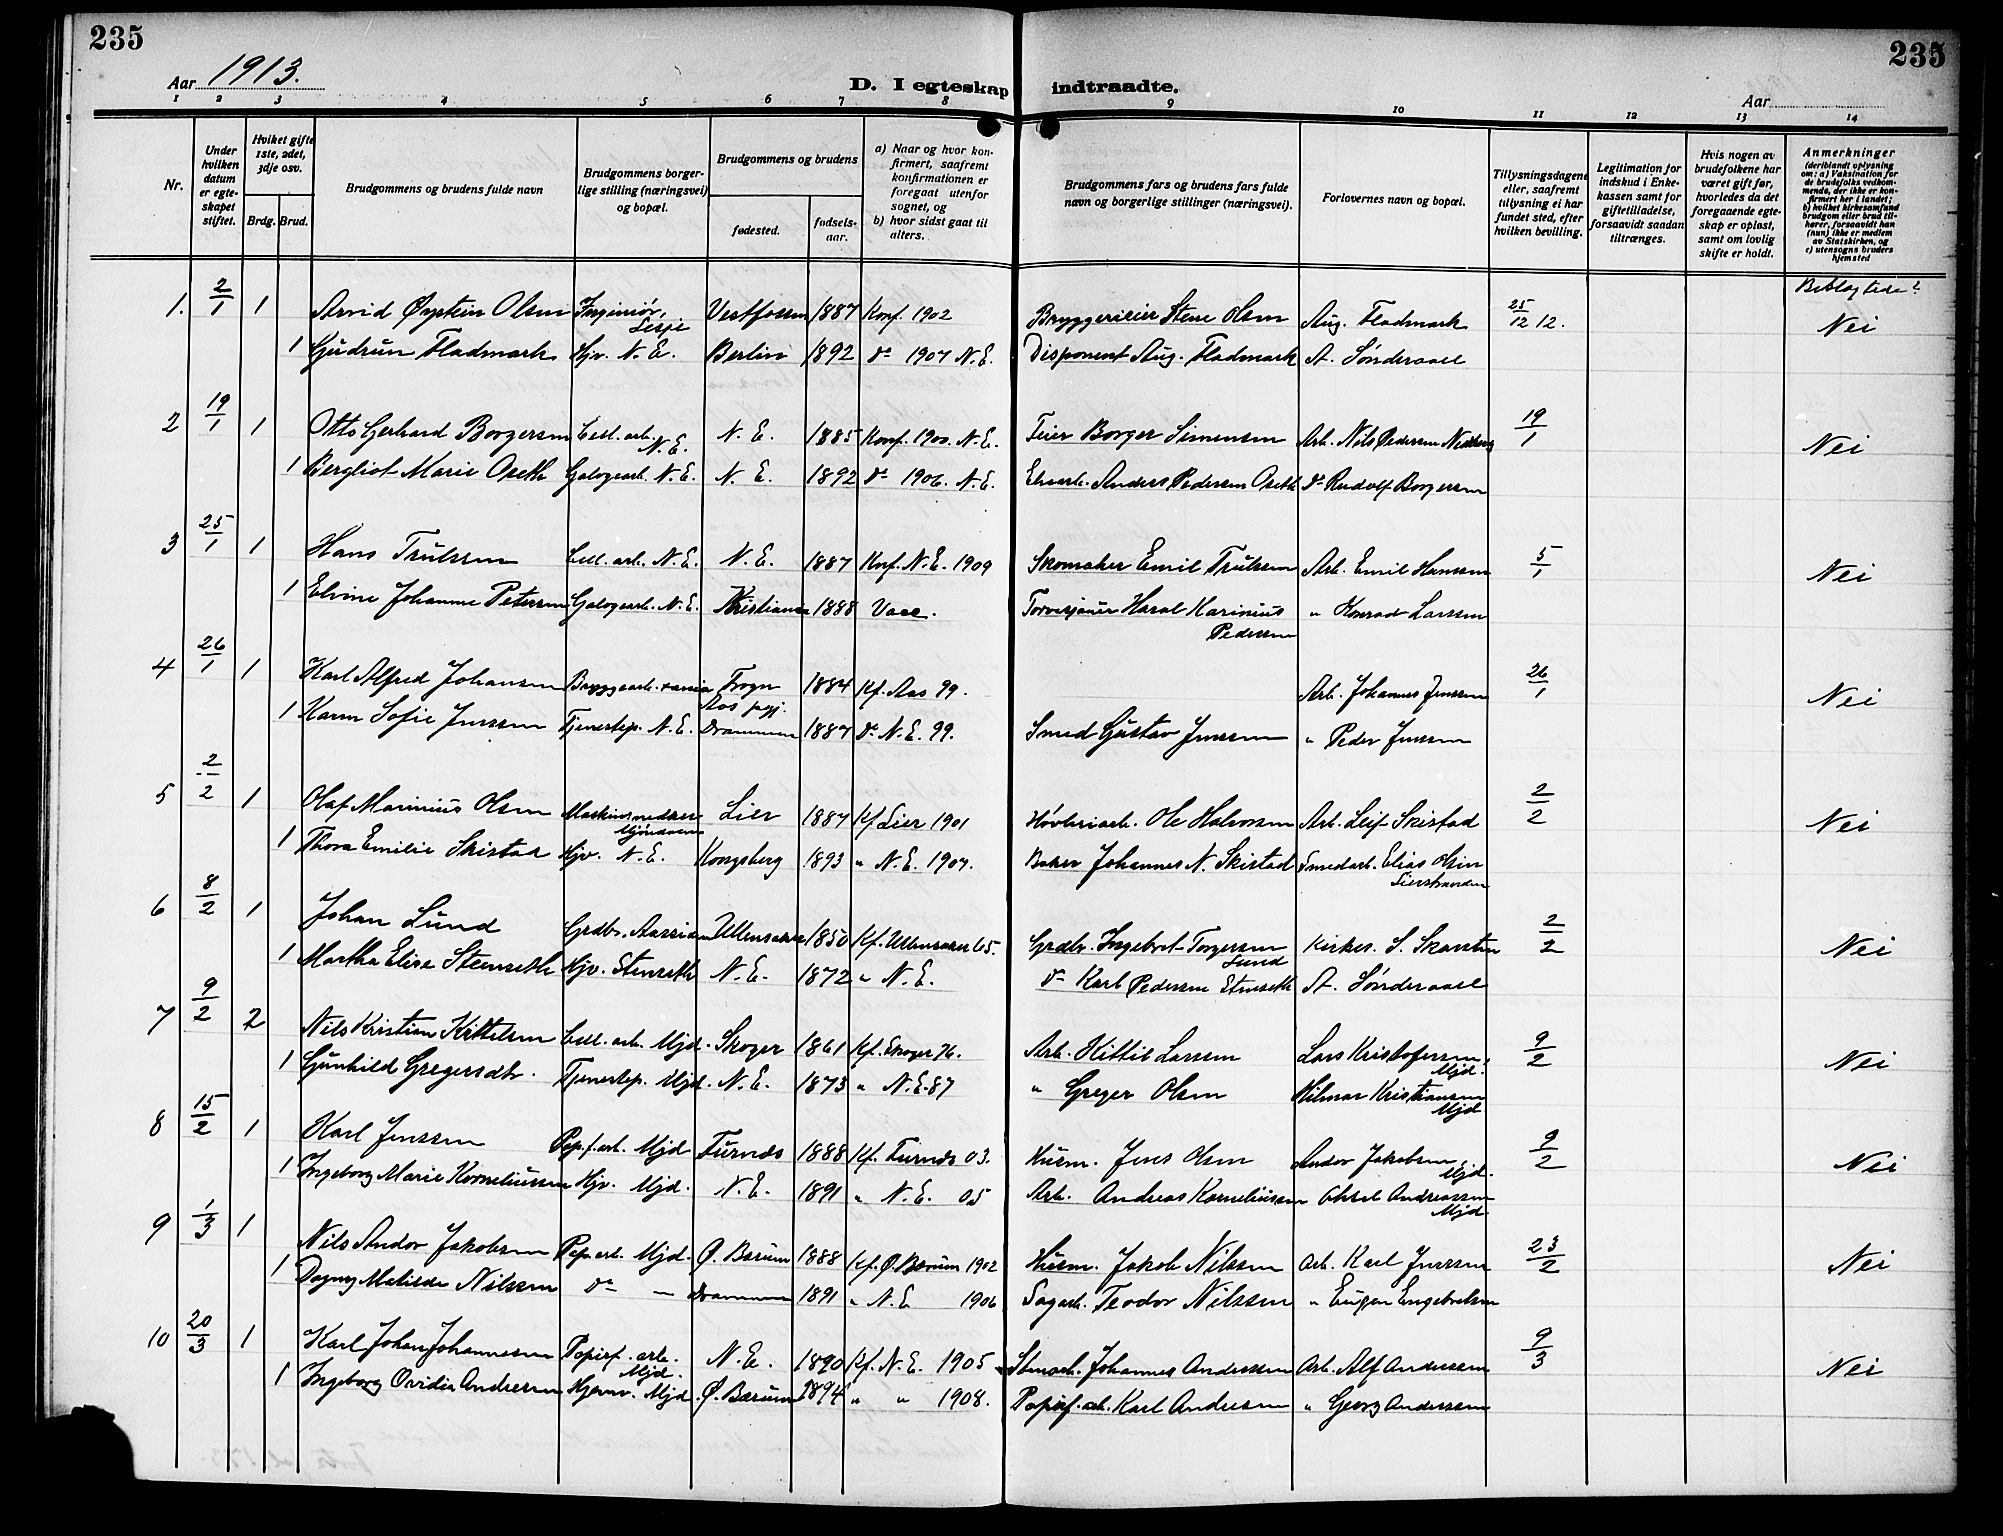 235
235
Aar 1913.
D. I egteskap indtraadte.
Aar
1 2 3 4 5 6 7 8 9 10 11 12 13 14
Nr.
Under hvilken datum er egteskapet stiftet.
Hvilket gifte 1ste, 2det, 3dje osv.
Brdg. Brud.
Brudgommens og brudens fulde navn
Brudgommens borgerlige stilling (næringsvei) og bopæl.
Brudgommens og brudens
fødested.
fødselsaar.
a) Naar og hvor konfirmert, saafremt konfirmationen er foregaat utenfor sognet, og
b) hvor sidst gaat til alters.
Brudgommens fars og brudens fars fulde navn og borgerlige stillinger (næringsvei).
Forlovernes navn og bopæl.
Tillysningsdagene eller, saafremt tillysning ei har fundet sted, efter hvilken bevilling.
Legitimation for indskud i Enkekassen samt for giftetilladelse, forsaavidt saadan tiltrænges.
Hvis nogen av brudefolkene har været gift før, hvorledes da det foregaaende egteskap er opløst, samt om lovlig skifte er holdt.
Anmerkninger (deriblandt oplysning om: a) Vaksination for de brudefolks vedkommende, der ikke er konfirmert her i landet; b) hvilket kirkesamfund brudgom eller brud tilhører, forsaavidt han (hun) ikke er medlem av Statskirken, og c) utensogns bruders hjemsted
1. 2/1 1 Arvid Øystein Olsen Ingeniør, Lesje Vestfossen 1887 Konf. 1902 Bryggerieier Stene Olsen Aug. Fladmark 25/12 12. Beslægtede? Nei
1 Gudrun Fladmark Hjv. N.E. Berlin 1892 do 1907 N.E. Disponent Aug. Fladmark A. Sønderaael
2 19/1 1 Otto Gerhard Borgersen Cell. arb. N.E. N.E. 1885 Konf. 1900. N.E. Feier Borger Simensen Arb. Nils Pedersen Nedberg 19/1 Nei
1 Bergliot Marie Oseth Galogearb. N.E. N.E. 1892 do 1906. N.E. Anders Pedersen Oseth do Rudolf Borgersen
3 25/1 1 Hans Trulssen Cell. arb. N.E. N.E. 1887 Konf. N.E. 1909 Skomaker Emil Trulssen Arb. Emil Hanssen 5/1 Nei
1 Elvine Johanne Petersen Galogearb. N.E. Kristiania 1888 Vacc. Haral Karinius Pedersen " Konrad Larssen
4 26/1 1 Karl Alfred Johansen Bryggearb. x ania Frogn Aas pgj. 1884 Kf. Aas 99. Arb. Johannes Jenssen 26/1 Nei
1 Karen Sofie Jenssen Tjenestep. N.E. Drammen 1887 do N.E. 99. Smed Gustav Jenssen " Peder Jenssen
5 2/2 1 Olaf Marinius Olsen Mjøndalen Lier 1887 Kf Lier 1901 Høvleriarb. Ole Halvorsen Arb. Leif Skistad 2/2 Nei
1 Thora Emilie Skistad Hjv. N.E. Kongsberg 1893 " N.E. 1907. Baker Johannes N. Skistad Smedarb. Elias Olsen Lierstranden
6 8/2 1 Johan Lund Grdbr. Aassiden Ullensaker 1850 Kf. Ullensaker 65. Grdbr. Ingebret Torgersen Lund Kirkes. S. Skarsten 2/2 Nei
1 Martha Elise Steenseth Hjv. Stenseth N.E. 1872 " N.E. do Karl Pedersen Stenseth A. Sønderaael
7 9/2 2 Nils Kristian Kittelsen Cell. arb. Mjd. Skoger 1861 Kf. Skoger 76. Arb. Kittil Larssen Lars Kristofersen Mjd. 9/2 Nei
1 Gunhild Gregersdtr. Tjenestep. Mjd. N.E. 1873 " N.E. 87 " Greger Olsen Hilmar Kristiansen Mjd
8 15/2 1 Karl Jenssen Pap.f.arb. Mjd Furnes 1888 Kf. Furnes 03. Husm. Jens Olsen Andor Jakobsen Mjd. 9/2 Nei
1 Ingeborg Marie Korneliussen Hjv. Mjd. N.E. 1891 " N.E. 05 Arb. Andreas Korneliussen Aksel Andreassen Mjd.
9 1/3 1 Nils Andor Jakobsen Pap.arb. Mjd. Ø. Bærum 1888 Kf. Ø. Bærum 1902 Husm. Jakob Nilssen Arb. Karl Jenssen 23/2 Nei
1 Dagny Matilde Nilssen do — Drammen 1891 " N.E. 1906 Sagarb. Teodor Nilssen " Eugen Engebretsen
10 20/3 1 Karl Johan Johannesen Papirf. arb. Mjd. N.E. 1890 Kf. N.E. 1905 Stenarb. Johannes Anderssen Arb. Alf Anderssen 9/3 Nei
1 Ingeborg Ovidia Andresen Hjemv. Mjd. Ø. Bærum 1894 " " 1908. Papirf. arb. Karl Andresen " Georg Anderssen